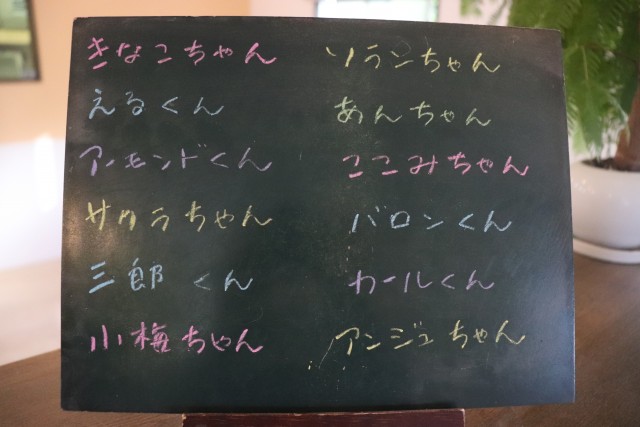 きなこちゃん
えるくん
アーモンドくん
サクラちゃん
三郎くん
小梅ちゃん
ソランちゃん
あんちゃん
ここみちゃん
バロンくん
カールくん
アンジュちゃん